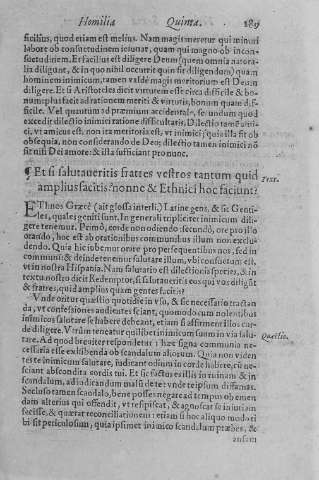 Homilia Quinta. 289
ficilius, quod etiam est melius. Nam magis meretur qui minori
labore ob consuetudinem ieiunat, quam qui magno ob incon-
suetudinem. Et facilius est diligere Deum (quem omnia natura-
lia diligunt, & in quo nihil occurrit quin sit diligendum) quam
hominem inimicum, tamen valde magis meritorium est Deum
diligere. Et si Aristoteles dicit virtutem esse circa difficile & bo-
num: plus facit ad rationem meriti & virtutis, bonum quam dif-
ficile. Vel quantum ad præmium accidentale, secundum quod
excedit dilectio inimici ratione difficultatis. Dilectio tamen ini-
ci, vt amicus est, non ita meritoria est, vt inimici; quia illa fit ob
obsequia, non considerando de Deo. Dilectio tamen inimici nõ
fit nisi Dei amore & illa sufficiant pro nunc.
¶ Et si salutaueritis fratres vestros tantum quid
amplius facitis? nonne & Ethnici hoc faciunt? Text.
EThnos Græcè (ait glossa interli.) Latine gens, & sic Genti-
les, quales geniti sunt. In generali tripliciter inimicum dili-
gere tenemur. Primò, corde non odiendo secundò, ore pro illo
orando, hoc est ab orationibus communibus illum non exclu-
dendo. Quia hic iubemur orare pro persequentibus nos, sed in
communi: & deinde tenemur salutare illum, vbi consuetum est,
vt in nostra Hispania. Nam salutatio est dilectionis species, & in
textu nostro dicit Redemptor, si salutaueritis eos qui vos diligũt
& fratres, quid amplius quam gentes facitis?
Vnde oritur quæstio quotidie in vsu, & sic necessario tractan
da, vt confessiones audientes sciant, quomodo cum nolentibus
inimicos salutare se habere debeant, etiam si affirment illos cor-
de diligere. Vtrũm teneatur quilibet inimicum suum in via salu- Quæstio.
tare. Ad quod breuiter respondetur: hæc signa communia ne-
cessaria esse exhibenda ob scandalum aliorum. Quia non viden
tes te inimicum salutare, iudicant odium in corde habere, cũ ne-
sciant abscondita cordis tui. Et sic factus es illis in ruinam & in
scandalum, ad iudicandum male de te: vnde te ipsum diffamas.
Secluso tamen scandalo, bene posses negare ad tempus ob emen
dam alterius qui offendit, vt resipiscat, & agnoscat se iniuriam
fecisse, & quærat reconciliationem: etiam si hoc aliquo modo ti
bi sit periculosum, quia ipsimet inimico scandalum præbes, &
ansam